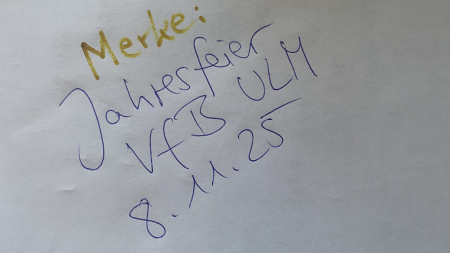 Merke:
Jahresfeier
VfB ULM
8.11.25